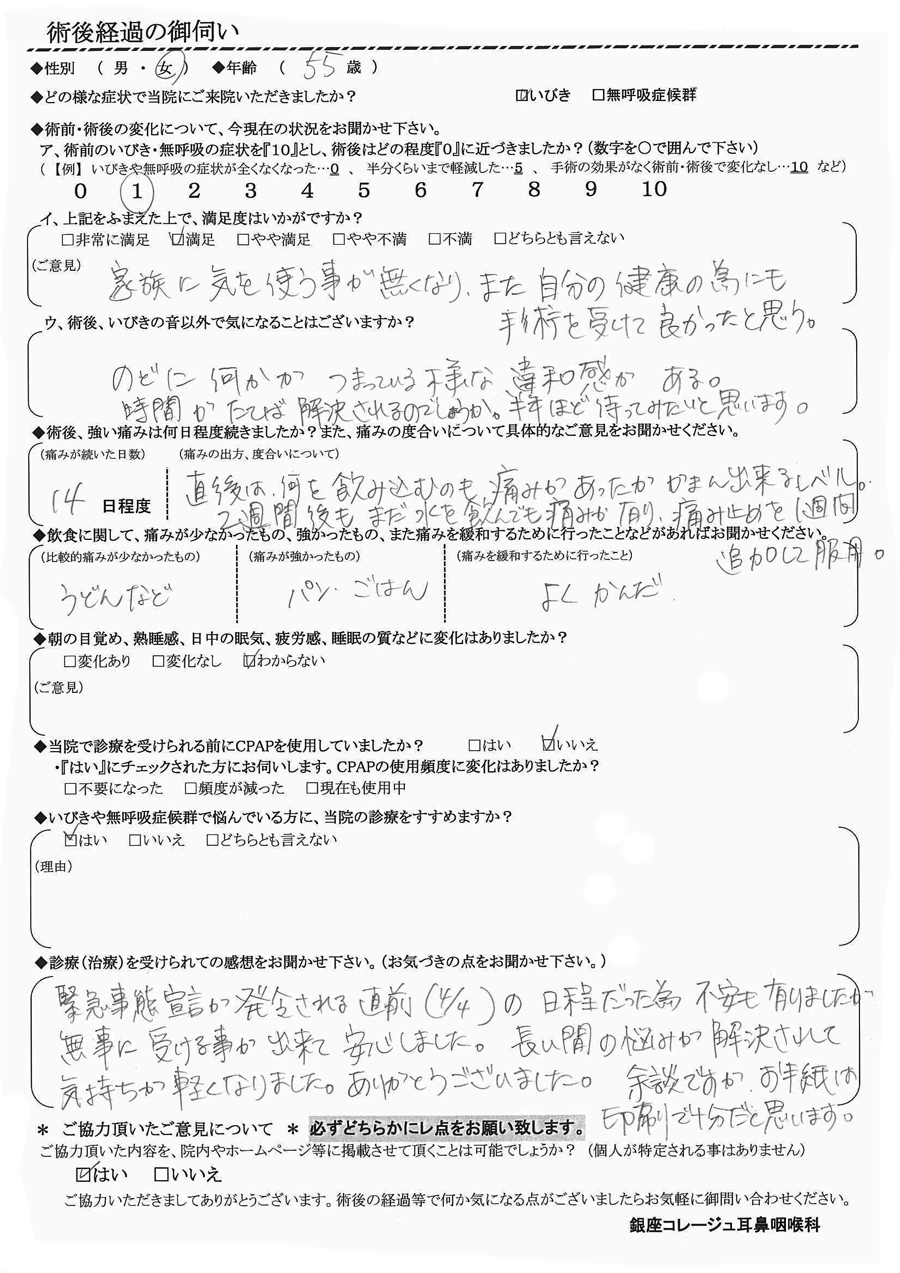 術後経過の御伺い
◆性別 ( 男 ・ 女 ) ◆年齢 ( 55 歳 )
◆どの様な症状で当院にご来院いただきましたか? ☑いびき □無呼吸症候群
◆術前・術後の変化について、今現在の状況をお聞かせ下さい。
ア、術前のいびき・無呼吸の症状を『10』とし、術後はどの程度『0』に近づきましたか?(数字を〇で囲んで下さい)
(【例】いびきや無呼吸の症状が全くなくなった…0 、 半分くらいまで軽減した…5 、 手術の効果がなく術前・術後で変化なし…10 など)
0 1 2 3 4 5 6 7 8 9 10
イ、上記をふまえた上で、満足度はいかがですか?
□非常に満足 ☑満足 □やや満足 □やや不満 □不満 □どちらとも言えない
(ご意見)
家族に気を使う事が無くなり、また自分の健康の為にも
手術を受けて良かったと思う。
ウ、術後、いびきの音以外で気になることはございますか?
のどに何かが つまっている様な違和感が ある。
時間がたてば解決されるのでしょうか。半年ほど待ってみたいと思います。
◆術後、強い痛みは何日程度続きましたか?また、痛みの度合いについて具体的なご意見をお聞かせください。
(痛みが続いた日数) (痛みの出方、度合いについて)
14 日程度
直後は、何を飲み込むのも痛みがあったが がまん出来るレベル。
2週間後もまだ水を飲んでも痛みが有り、痛み止めを1週間
追加して服用。
◆飲食に関して、痛みが少なかったもの、強かったもの、また痛みを緩和するために行ったことなどがあればお聞かせください。
(比較的痛みが少なかったもの) (痛みが強かったもの) (痛みを緩和するために行ったこと)
うどんなど パン・ごはん よく かんだ.
◆朝の目覚め、熟睡感、日中の眠気、疲労感、睡眠の質などに変化はありましたか?
□変化あり □変化なし ☑わからない
(ご意見)
◆当院で診療を受けられる前にCPAPを使用していましたか? □はい ☑いいえ
・『はい』にチェックされた方にお伺いします。CPAPの使用頻度に変化はありましたか?
□不要になった □頻度が減った □現在も使用中
◆いびきや無呼吸症候群で悩んでいる方に、当院の診療をすすめますか?
☑はい □いいえ □どちらとも言えない
(理由)
◆診療(治療)を受けられての感想をお聞かせ下さい。(お気づきの点をお聞かせ下さい。)
緊急事態宣言が発令される直前(4/4)の日程だった為 不安も有りましたが
無事に受ける事が出来て安心しました。長い間の悩みが解決されて
気持ちが軽くなりました。ありがとうございました。 余談ですが、お手紙は
印刷で十分だと思います。
＊ ご協力頂いたご意見について ＊ 必ずどちらかにレ点をお願い致します。
ご協力頂いた内容を、院内やホームページ等に掲載させて頂くことは可能でしょうか? (個人が特定される事はありません)
☑はい □いいえ
ご協力いただきましてありがとうございます。術後の経過等で何か気になる点がございましたらお気軽に御問い合わせください。
銀座コレージュ耳鼻咽喉科